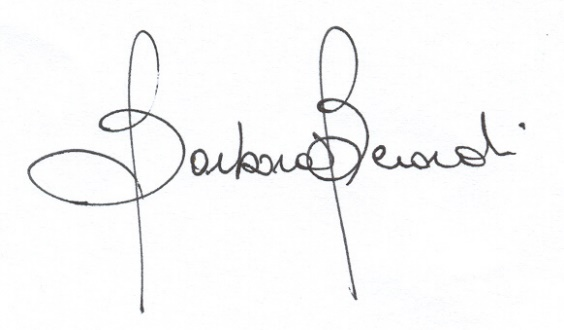 Barbara Berardi